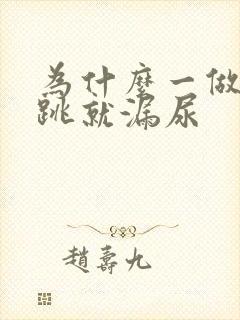 為什麼一做
跳就漏尿
趙壽九